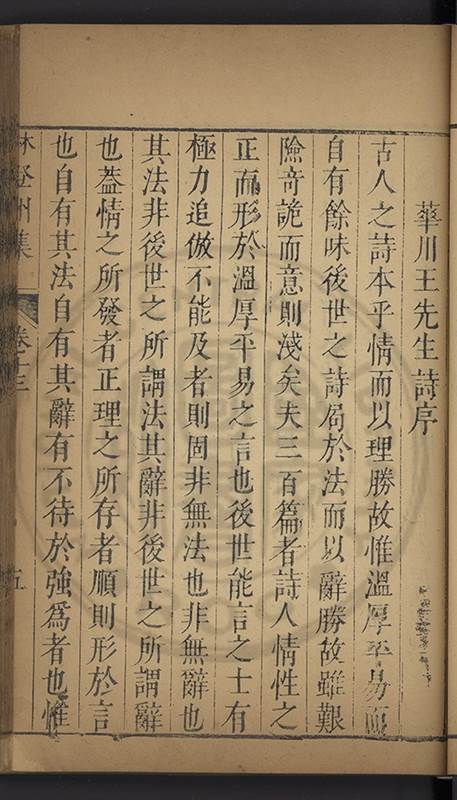 華川王先生詩序
古人之詩本乎情而以理勝故惟溫厚平易而
自有餘味後世之詩局於法而以辭勝故雖艱
險奇詭而意則淺矣夫三百篇者詩人情性之
正而形於溫厚平易之言也後世能言之士有
極力追倣不能及者則固非無法也非無辭也
其法非後世之所謂法其辭非後世之所謂辭
也葢情之所發者正理之所存者順則形於言
也自有其法自有其辭有不待於強爲者也惟
林登州集 卷十三 五